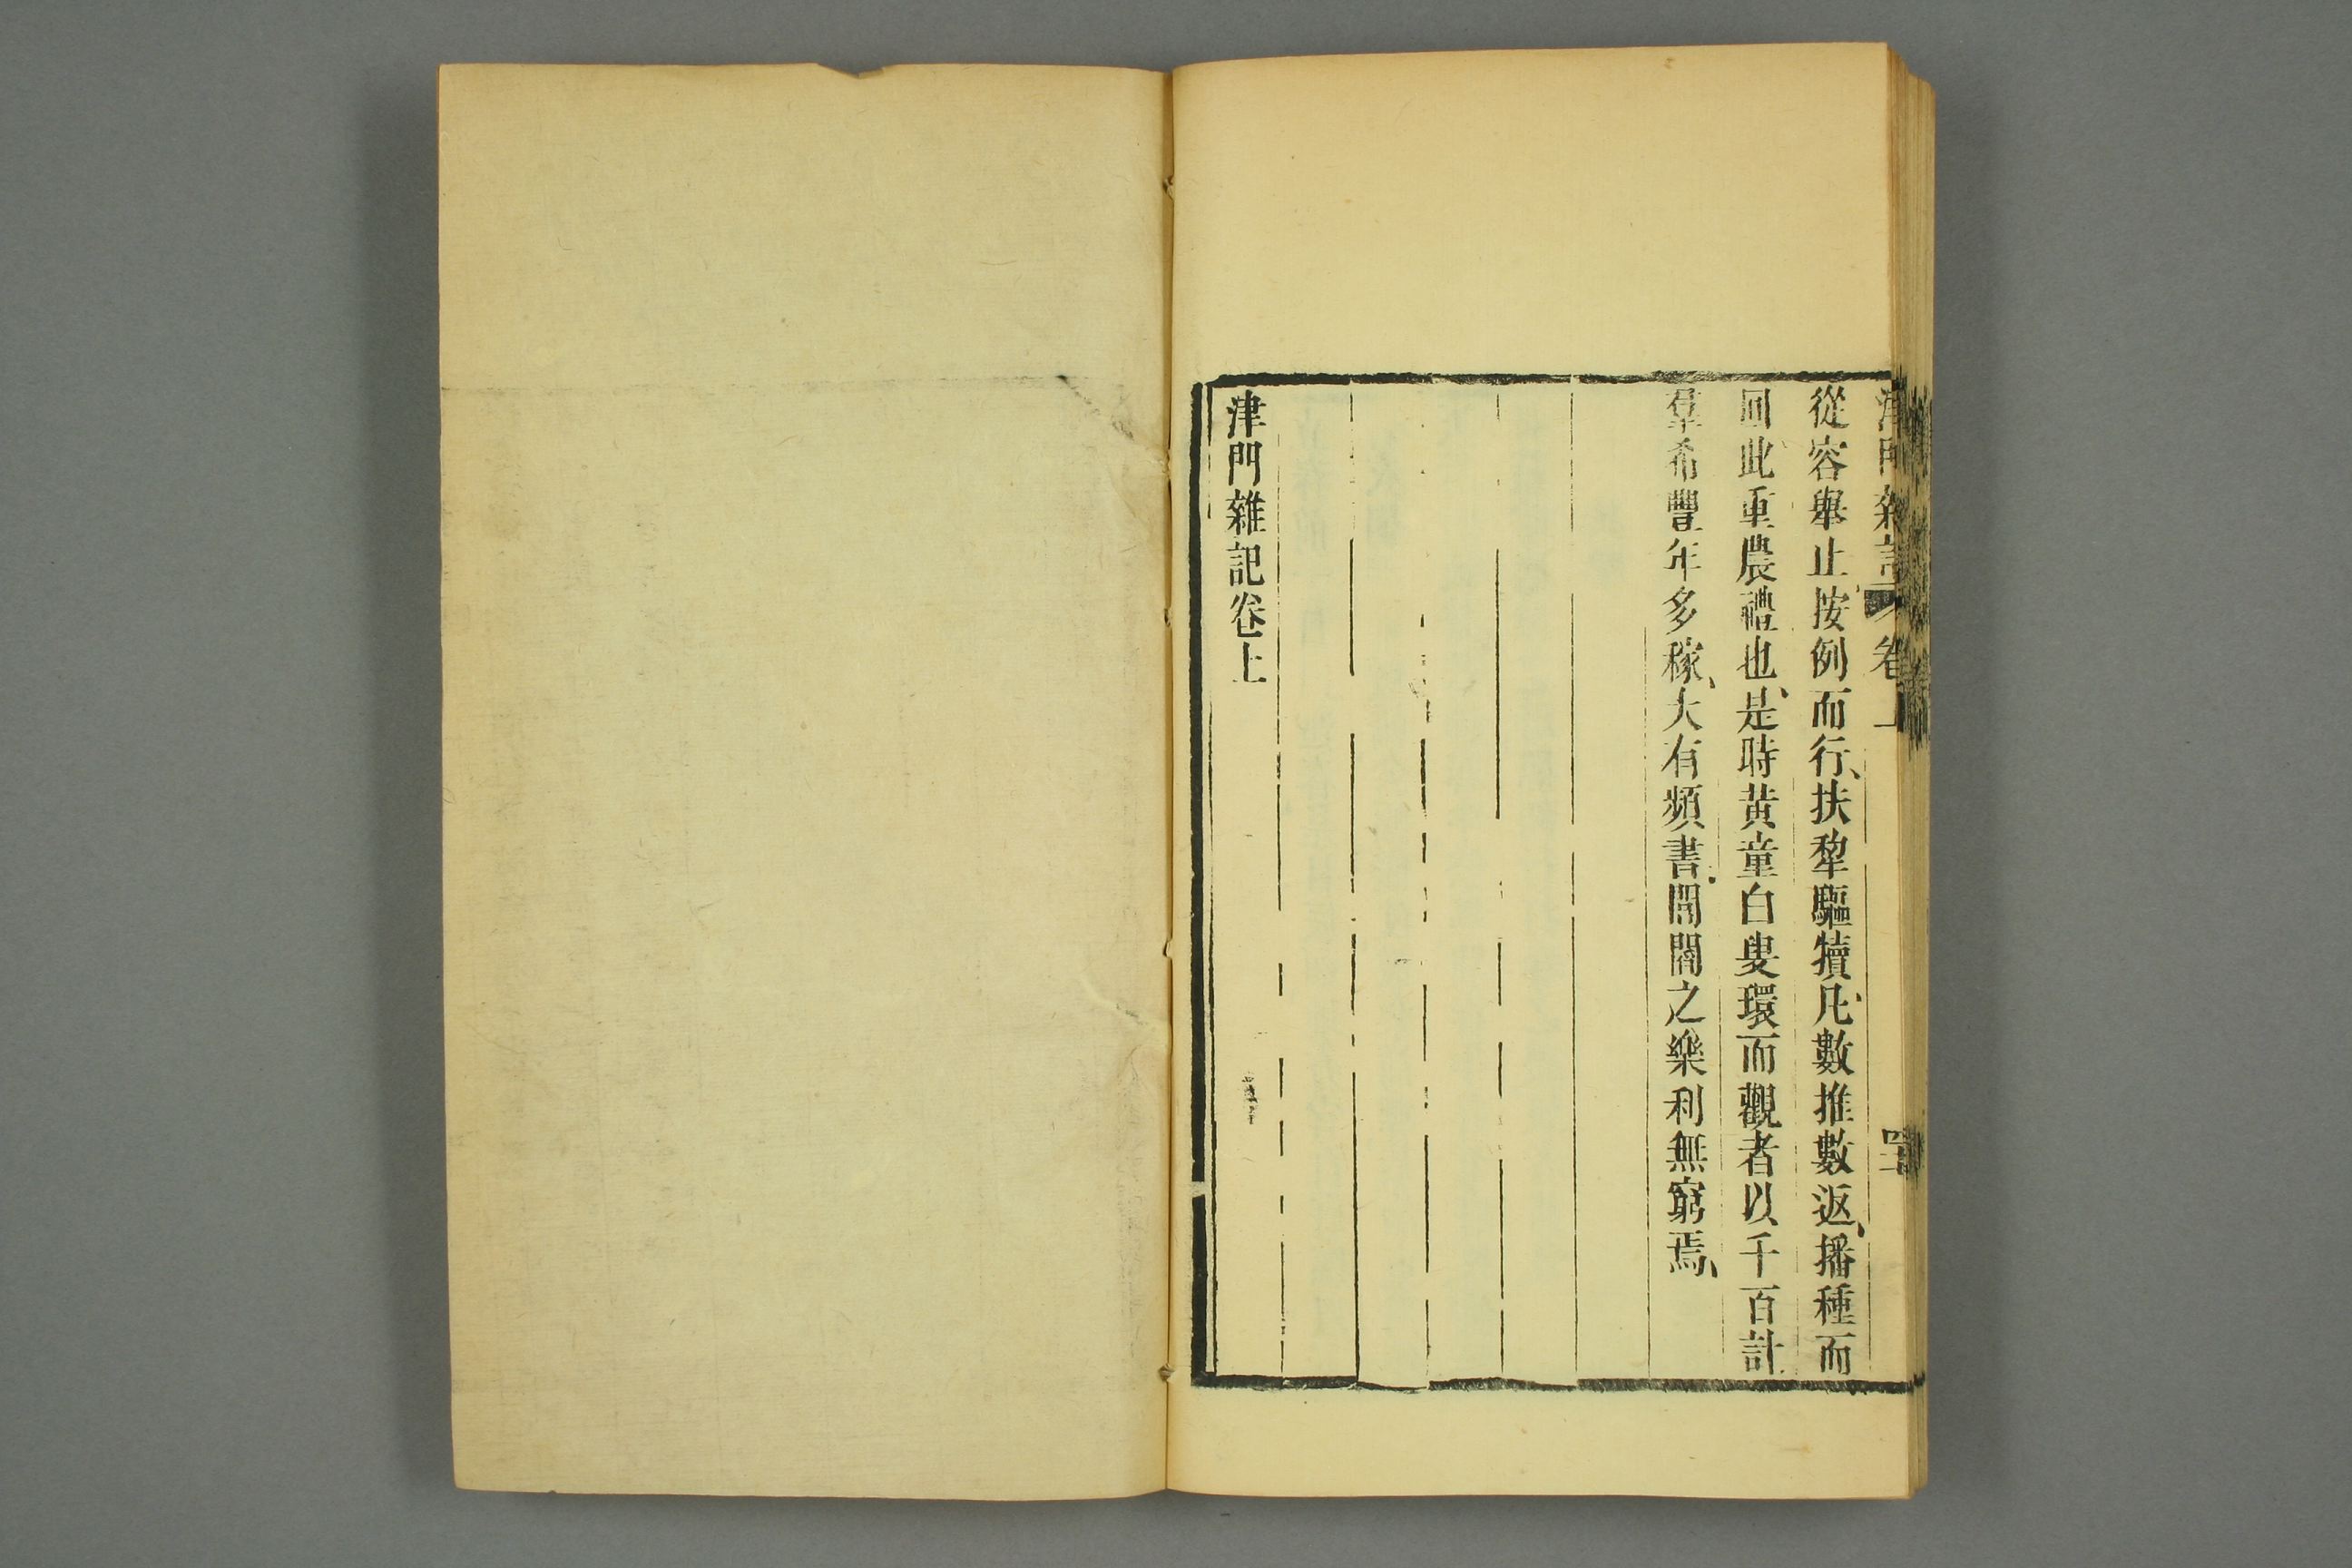 津門雜記 卷上
從容舉止按例而行、扶犂驅犢、凡數推數返、播種而
回、此重農禮也、是時黃童白叟環而觀者以千百計
羣希豐年多稼、大有頻書、閭閻之樂利無窮焉、
津門雜記卷上